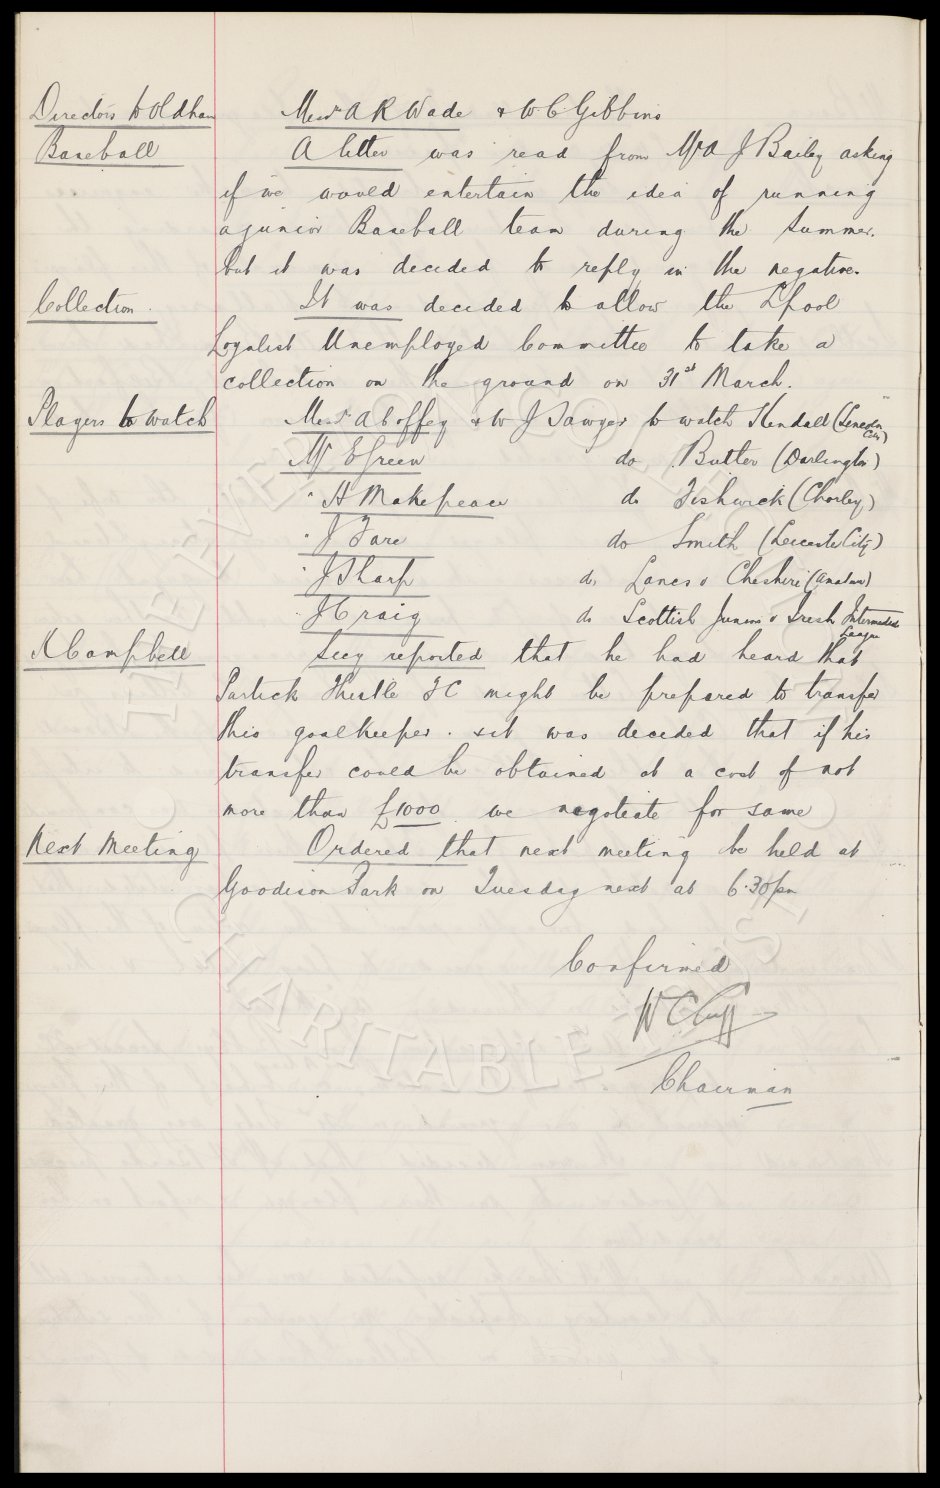 Directors to Oldham Messrs A R Wade & W C Gibbins
Baseball A letter was read from Mr A J Bailey asking
if we would entertain the idea of running
a junior Baseball team during the Summer.
but it was decided to reply in the negative.
Collection. It was decided to allow the Lpool
Loyalist Unemployed Committee to take a
collection on the ground on 31st March.
Players to watch Messrs A Coffey & W J Sawyer to watch Kendall (Lincoln City)
Mr E Green do Butler (Darlington)
" H Makepeace do Fishwick (Chorley)
" J Fare do Smith (Leicester City)
" J Sharp do Lancs v Cheshire (Amateur)
" J Craig do Scottish Juniors v Irish Intermediate League
K Campbell Secy reported that he had heard that
Partick Thistle FC might be prepared to transfer
this goalkeeper. & it was decided that if his
transfer could be obtained at a cost of not
more than £1000 we negotiate for same
Next Meeting Ordered that next meeting be held at
Goodison Park on Tuesday next at 6.30pm
Confirmed
W C Cuff
Chairman
THE EVERTON COLLECTION
CHARITABLE TRUST